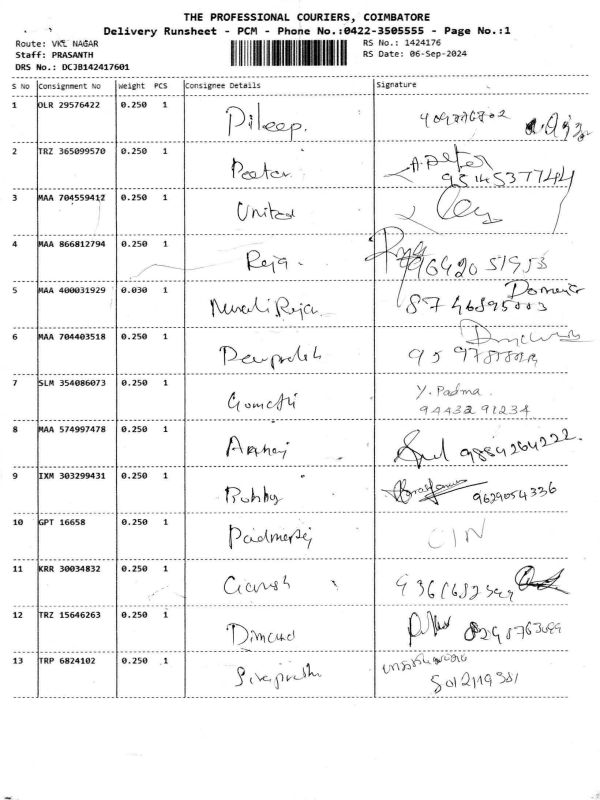 THE PROFESSIONAL COURIERS, COIMBATORE
Delivery Runsheet - PCM - Phone No.:0422-3505555 - Page No.:1
Route: VKL NAGAR RS No.: 1424176
Staff: PRASANTH RS Date: 06-Sep-2024
DRS No.: DCJB142417601
S No Consignment No Weight PCS Consignee Details Signature
1 OLR 29576422 0.250 1 Dileep.
2 TRZ 365099570 0.250 1 Peeter A. Peter
9514537744
3 MAA 704559412 0.250 1 United
4 MAA 866812794 0.250 1 Reja. 9642051953
5 MAA 400031929 0.030 1 Murali Rejan
8746895003
6 MAA 704403518 0.250 1
7 SLM 354086073 0.250 1 Gomethi Y. Padma.
94432 91234
8 MAA 574997478 0.250 1 9884264222.
9 IXM 303299431 0.250 1 Bobby 9629054336
10 GPT 16658 0.250 1 CIN
11 KRR 30034832 0.250 1 Ganesh
12 TRZ 15646263 0.250 1
13 TRP 6824102 0.250 1